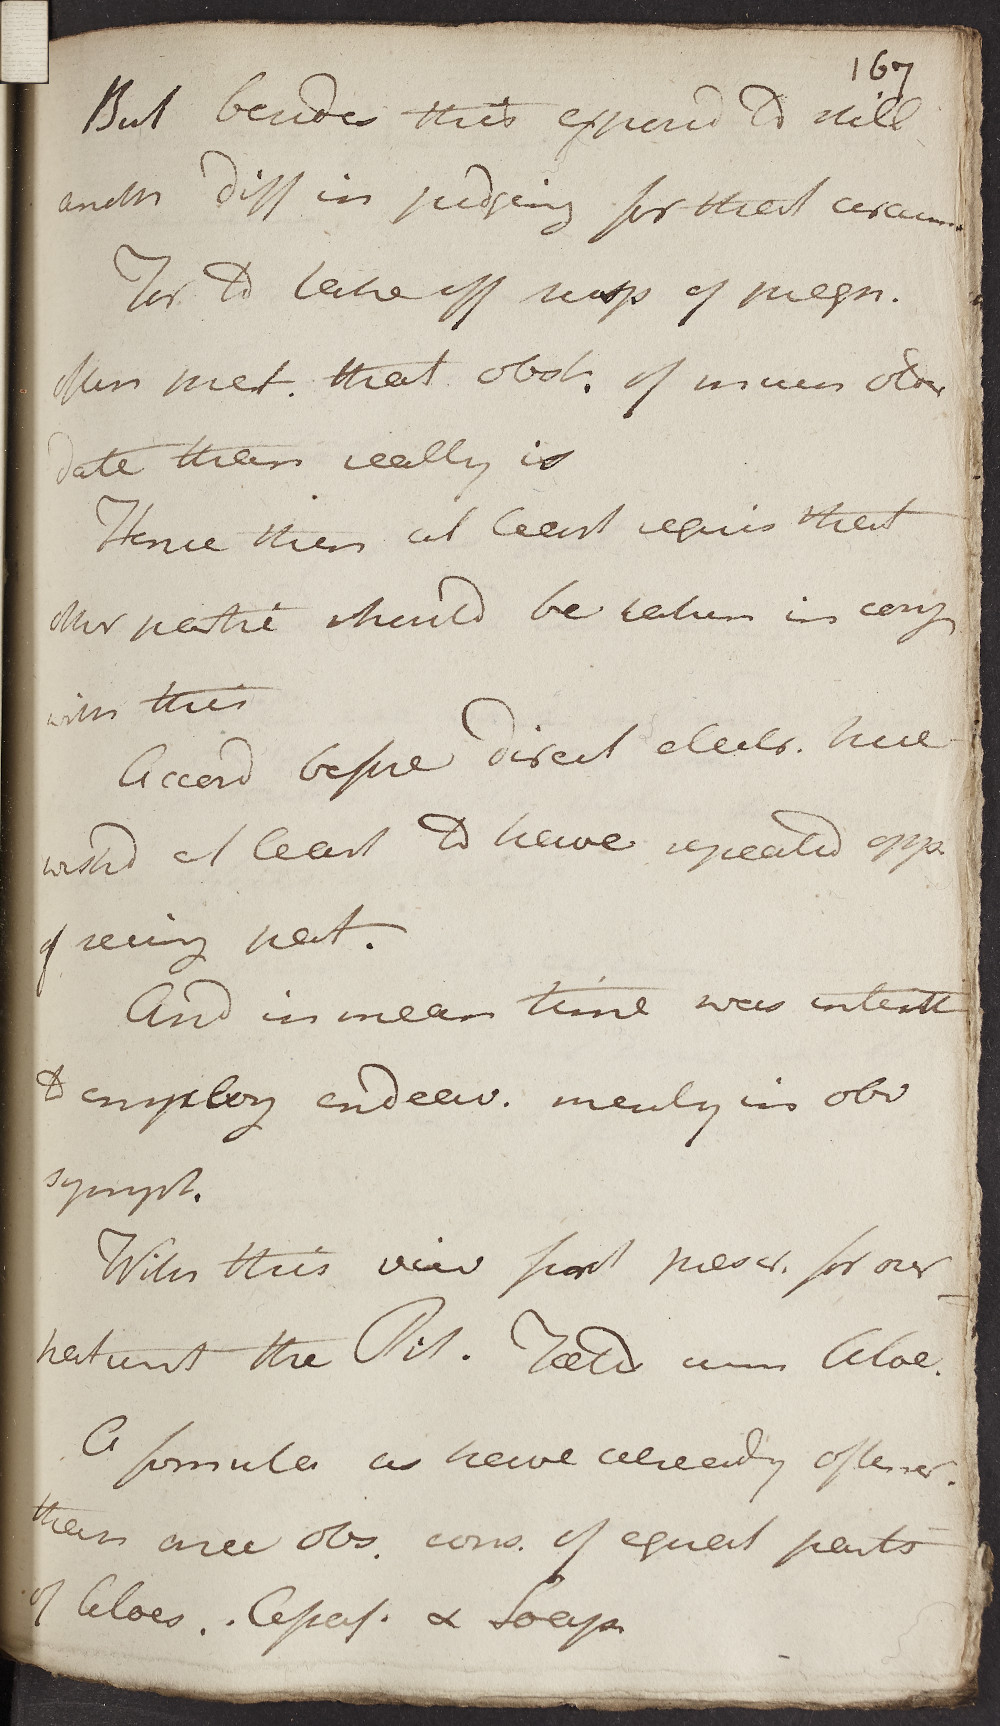 167
But besides this exposed to still
anothr diff in judging for that circum
For to take off susp of pregn.
often pret. that obst. of menses older
date than really is
Hence then at least requis that
other partic should be taken in conj
with this
Accord before direct electr. have
wishd at least to have repeated opp.
of seeing pat.
And in mean time was intentt
to employ endeav. merely in obv
sympt.
With this view first prescr. for our
patient the Pil. Foetid cum Aloe.
A formula as have already oftener
than once obs. cons. of equal parts
of Aloes. Asaf. & Soap